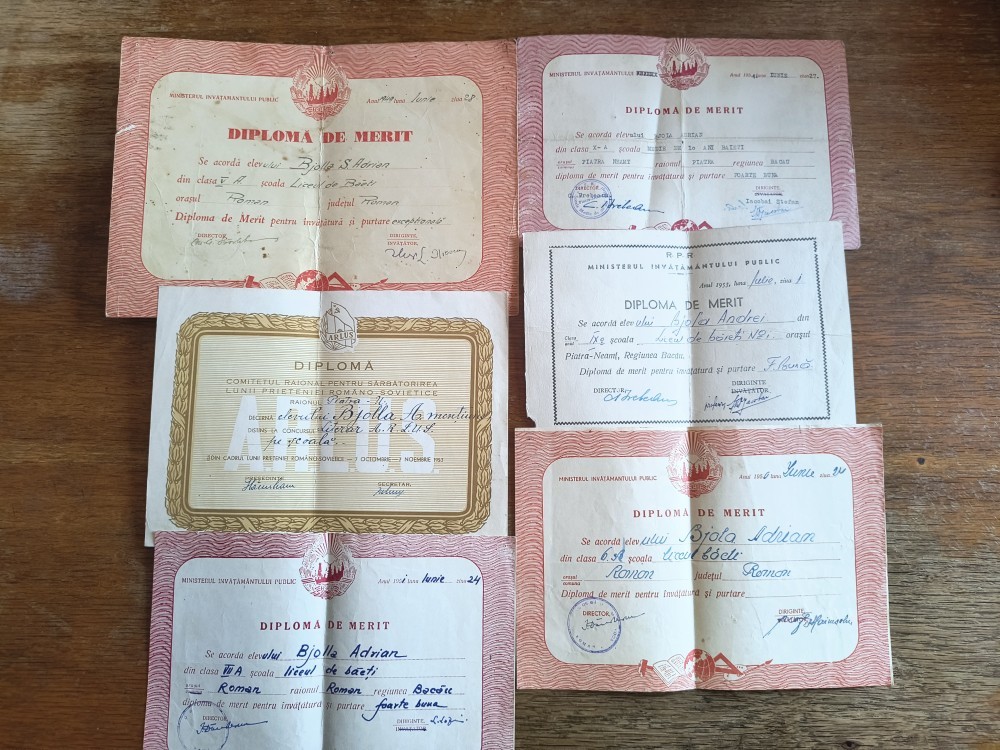 MINISTERUL INVĂȚĂMÂNTULUI PUBLIC
Anul 1949 luna Iunie ziua 28
DIPLOMĂ DE MERIT
Se acordă elevului Bjolla S. Adrian
din clasa V A școala Liceul de Băeti
orașul Roman județul Roman
Diploma de Merit pentru învățătură și purtare excepțională
DIRECTOR,
DIRIGINTE,
ÎNVĂȚĂTOR,
MINISTERUL INVĂȚĂMÂNTULUI
Anul 1954 luna IUNIE ziua 27.
DIPLOMĂ DE MERIT
Se acordă elevului BJOLA ADRIAN
din clasa X-A școala MEDIE DE 10 ANI BAIEȚI
orașul PIATRA NEAMȚ raionul PIATRA regiunea BACAU
diploma de merit pentru învățătură și purtare FOARTE BUNA
DIRECTOR
DIRIGINTE
R.P.R
MINISTERUL INVĂȚĂMÂNTULUI PUBLIC
Anul 1953, luna Iulie, ziua 1
DIPLOMA DE MERIT
Se acordă elevului Bjola Andrei din
Clasa IXB școala Liceul de băeti No 1 orașul
Piatra-Neamț, Regiunea Bacău
Diploma de merit pentru învățătură și purtare F. Bună
DIRECTOR
DIRIGINTE
ÎNVĂȚĂTOR
ARLUS
DIPLOMĂ
COMITETUL RAIONAL PENTRU SĂRBĂTORIREA
LUNII PRIETENIEI ROMÂNO-SOVIETICE
RAIONUL Piatra-N.
DECERNĂ elevului Bjolla A. mențiune
DISTINS LA CONCURSUL Literar A.R.L.U.S.
pe școală
ÎN CADRUL LUNII PRIETENIEI ROMÂNO-SOVIETICE — 7 OCTOMBRIE — 7 NOEMBRIE 1953
ARLUS
PREȘEDINTE
SECRETAR,
MINISTERUL INVĂȚĂMÂNTULUI PUBLIC
Anul 1950 luna Iunie ziua 24
DIPLOMĂ DE MERIT
Se acordă elevului Bjola Adrian
din clasa 6.A școala Liceul băeti
orașul
comuna Roman județul Roman
Diploma de merit pentru învățătură și purtare
DIRECTOR,
DIRIGINTE
MINISTERUL INVĂȚĂMÂNTULUI PUBLIC
Anul 1951 luna Iunie ziua 24
DIPLOMĂ DE MERIT
Se acordă elevului Bjolla Adrian
din clasa VII A școala liceul de băeti
Roman raionul Roman regiunea Bacău
diploma de merit pentru învățătură și purtare foarte buna
DIRECTOR
DIRIGINTE,
ÎNVĂȚĂTOR